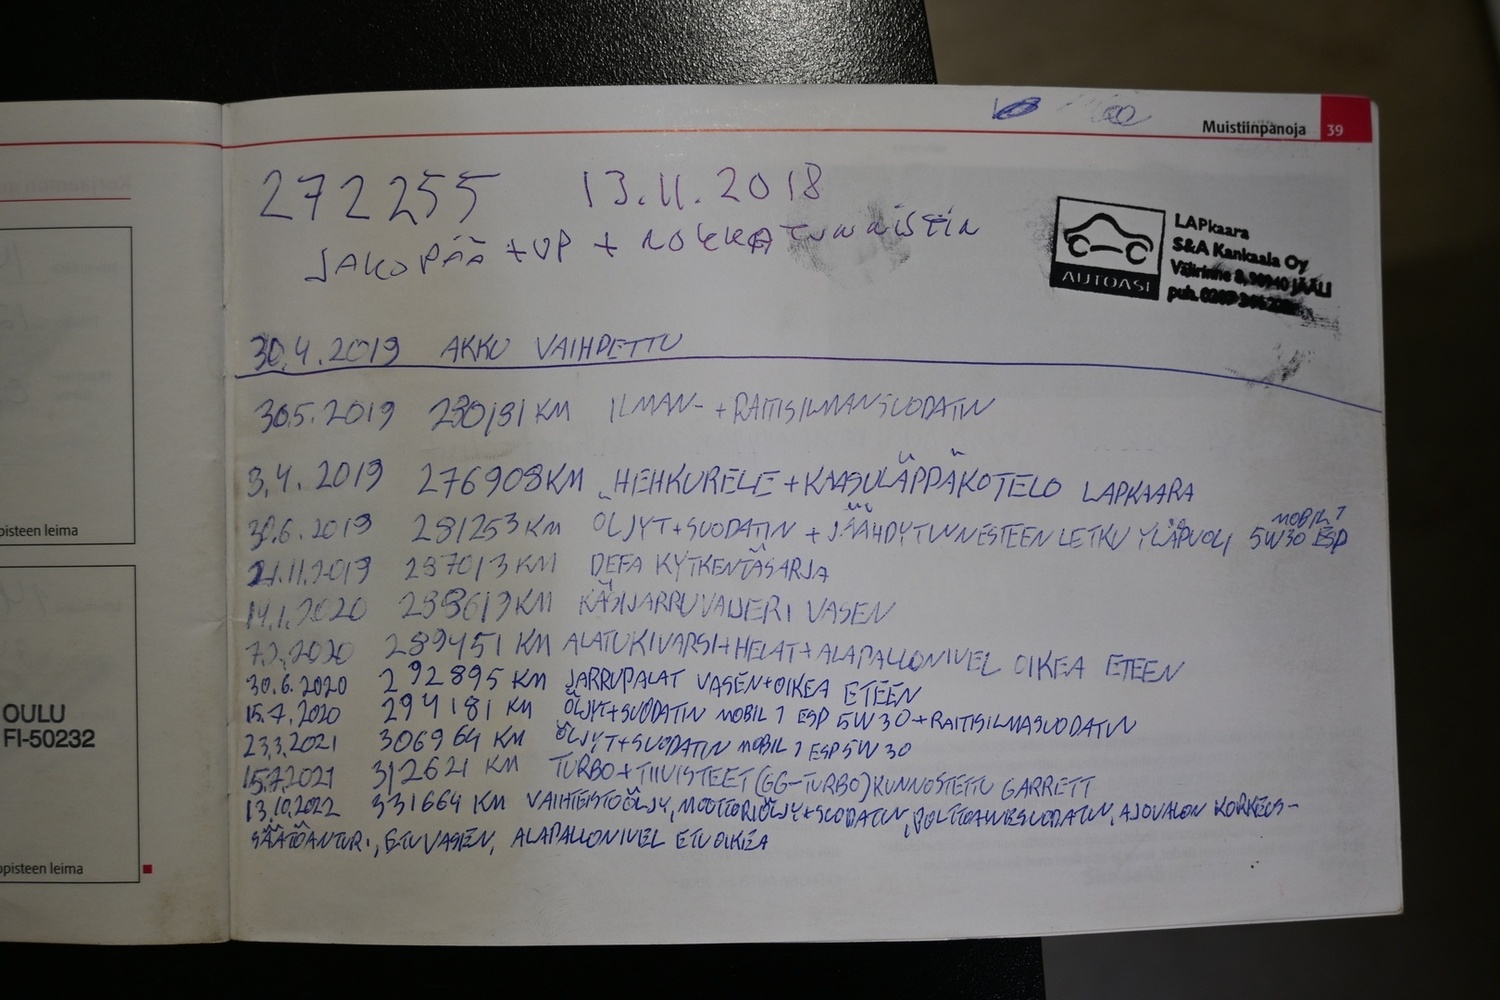 Muistiinpanoja 39
272255 13.11.2018
JAKOPÄÄ + VP + NOKKATUNNISTIN
LAPkaara
S&A Kankaala Oy
Välirinne 8, 90940 JÄÄLI
puh.
AUTOASI
30.4.2019 AKKU VAIHDETTU
30.5.2019 280181 KM ILMAN- + RAITISILMANSUODATIN
3.4.2019 276908KM HEHKURELE + KAASULÄPPÄKOTELO LAPKAARA
MOBIL 1
30.6.2019 281253 KM ÖLJYT + SUODATIN + JÄÄHDYTINNESTEEN LETKU YLÄPUOLI 5W30 ESP
21.11.2019 287013 KM DEFA KYTKENTÄSARJA
14.1.2020 288613 KM KÄSIJARRUVAIJERI VASEN
7.2.2020 289451 KM ALATUKIVARSI + HELAT + ALAPALLONIVEL OIKEA ETEEN
30.6.2020 292895 KM JARRUPALAT VASEN+OIKEA ETEEN
15.7.2020 294181 KM ÖLJYT+SUODATIN MOBIL 1 ESP 5W30+RAITISILMASUODATIN
23.3.2021 306964 KM ÖLJYT+SUODATIN MOBIL 1 ESP 5W30
15.7.2021 312621 KM TURBO + TIIVISTEET (GG-TURBO) KUNNOSTETTU GARRETT
13.10.2022 331664 KM VAIHTEISTOÖLJY, MOOTTORIÖLJY+SUODATIN, POLTTOAINESUODATIN, AJOVALON KORKEUS-
SÄÄTÖANTURI, ETUVASEN, ALAPALLONIVEL ETUOIKEA
pisteen leima
OULU
FI-50232
pisteen leima